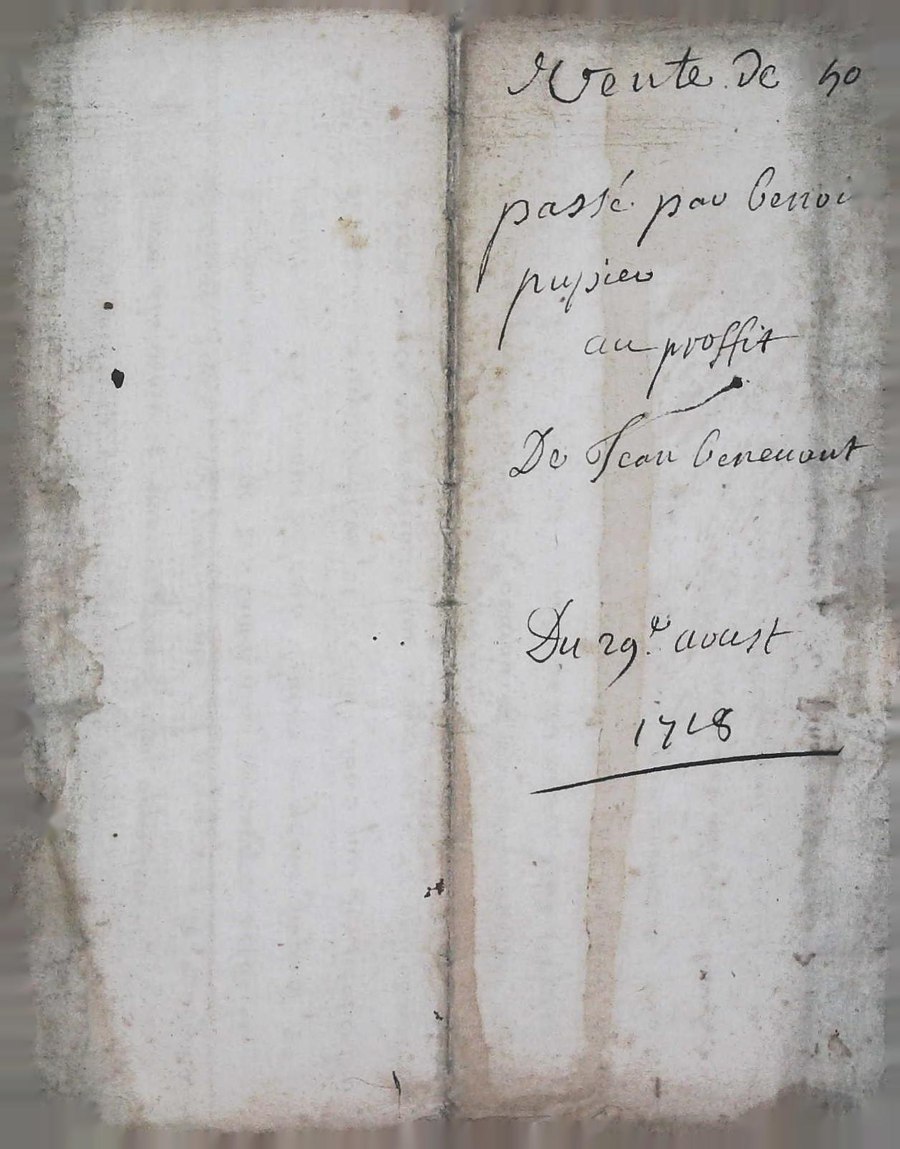 Vente de 50
passé par benoi
pupier
au proffit
De Jean benevant
Du 29e aoust
1718